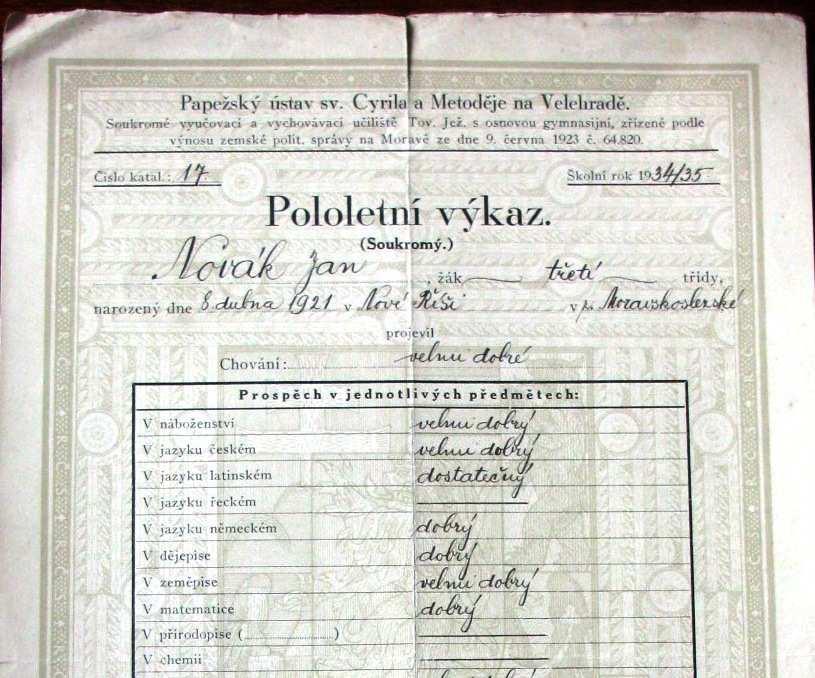 Papežský ústav sv. Cyrila a Metoděje na Velehradě.
Soukromé vyučovací a vychovávací učiliště Tov. Jež. s osnovou gymnasijní, zřízené podle
výnosu zemské polit. správy na Moravě ze dne 9. června 1923 č. 64.820.
Číslo katal.: 17. Školní rok 1934/35
Pololetní výkaz.
(Soukromý.)
Novák Jan, žák třetí třídy,
narozený dne 8. dubna 1921 v Nové Říši v z. Moravskoslezské
projevil
Chování: velmi dobré
Prospěch v jednotlivých předmětech:
V náboženství velmi dobrý
V jazyku českém velmi dobrý
V jazyku latinském dostatečný
V jazyku řeckém
V jazyku německém dobrý
V dějepise dobrý
V zeměpise velmi dobrý
V matematice dobrý
V přírodopise ( )
V chemii